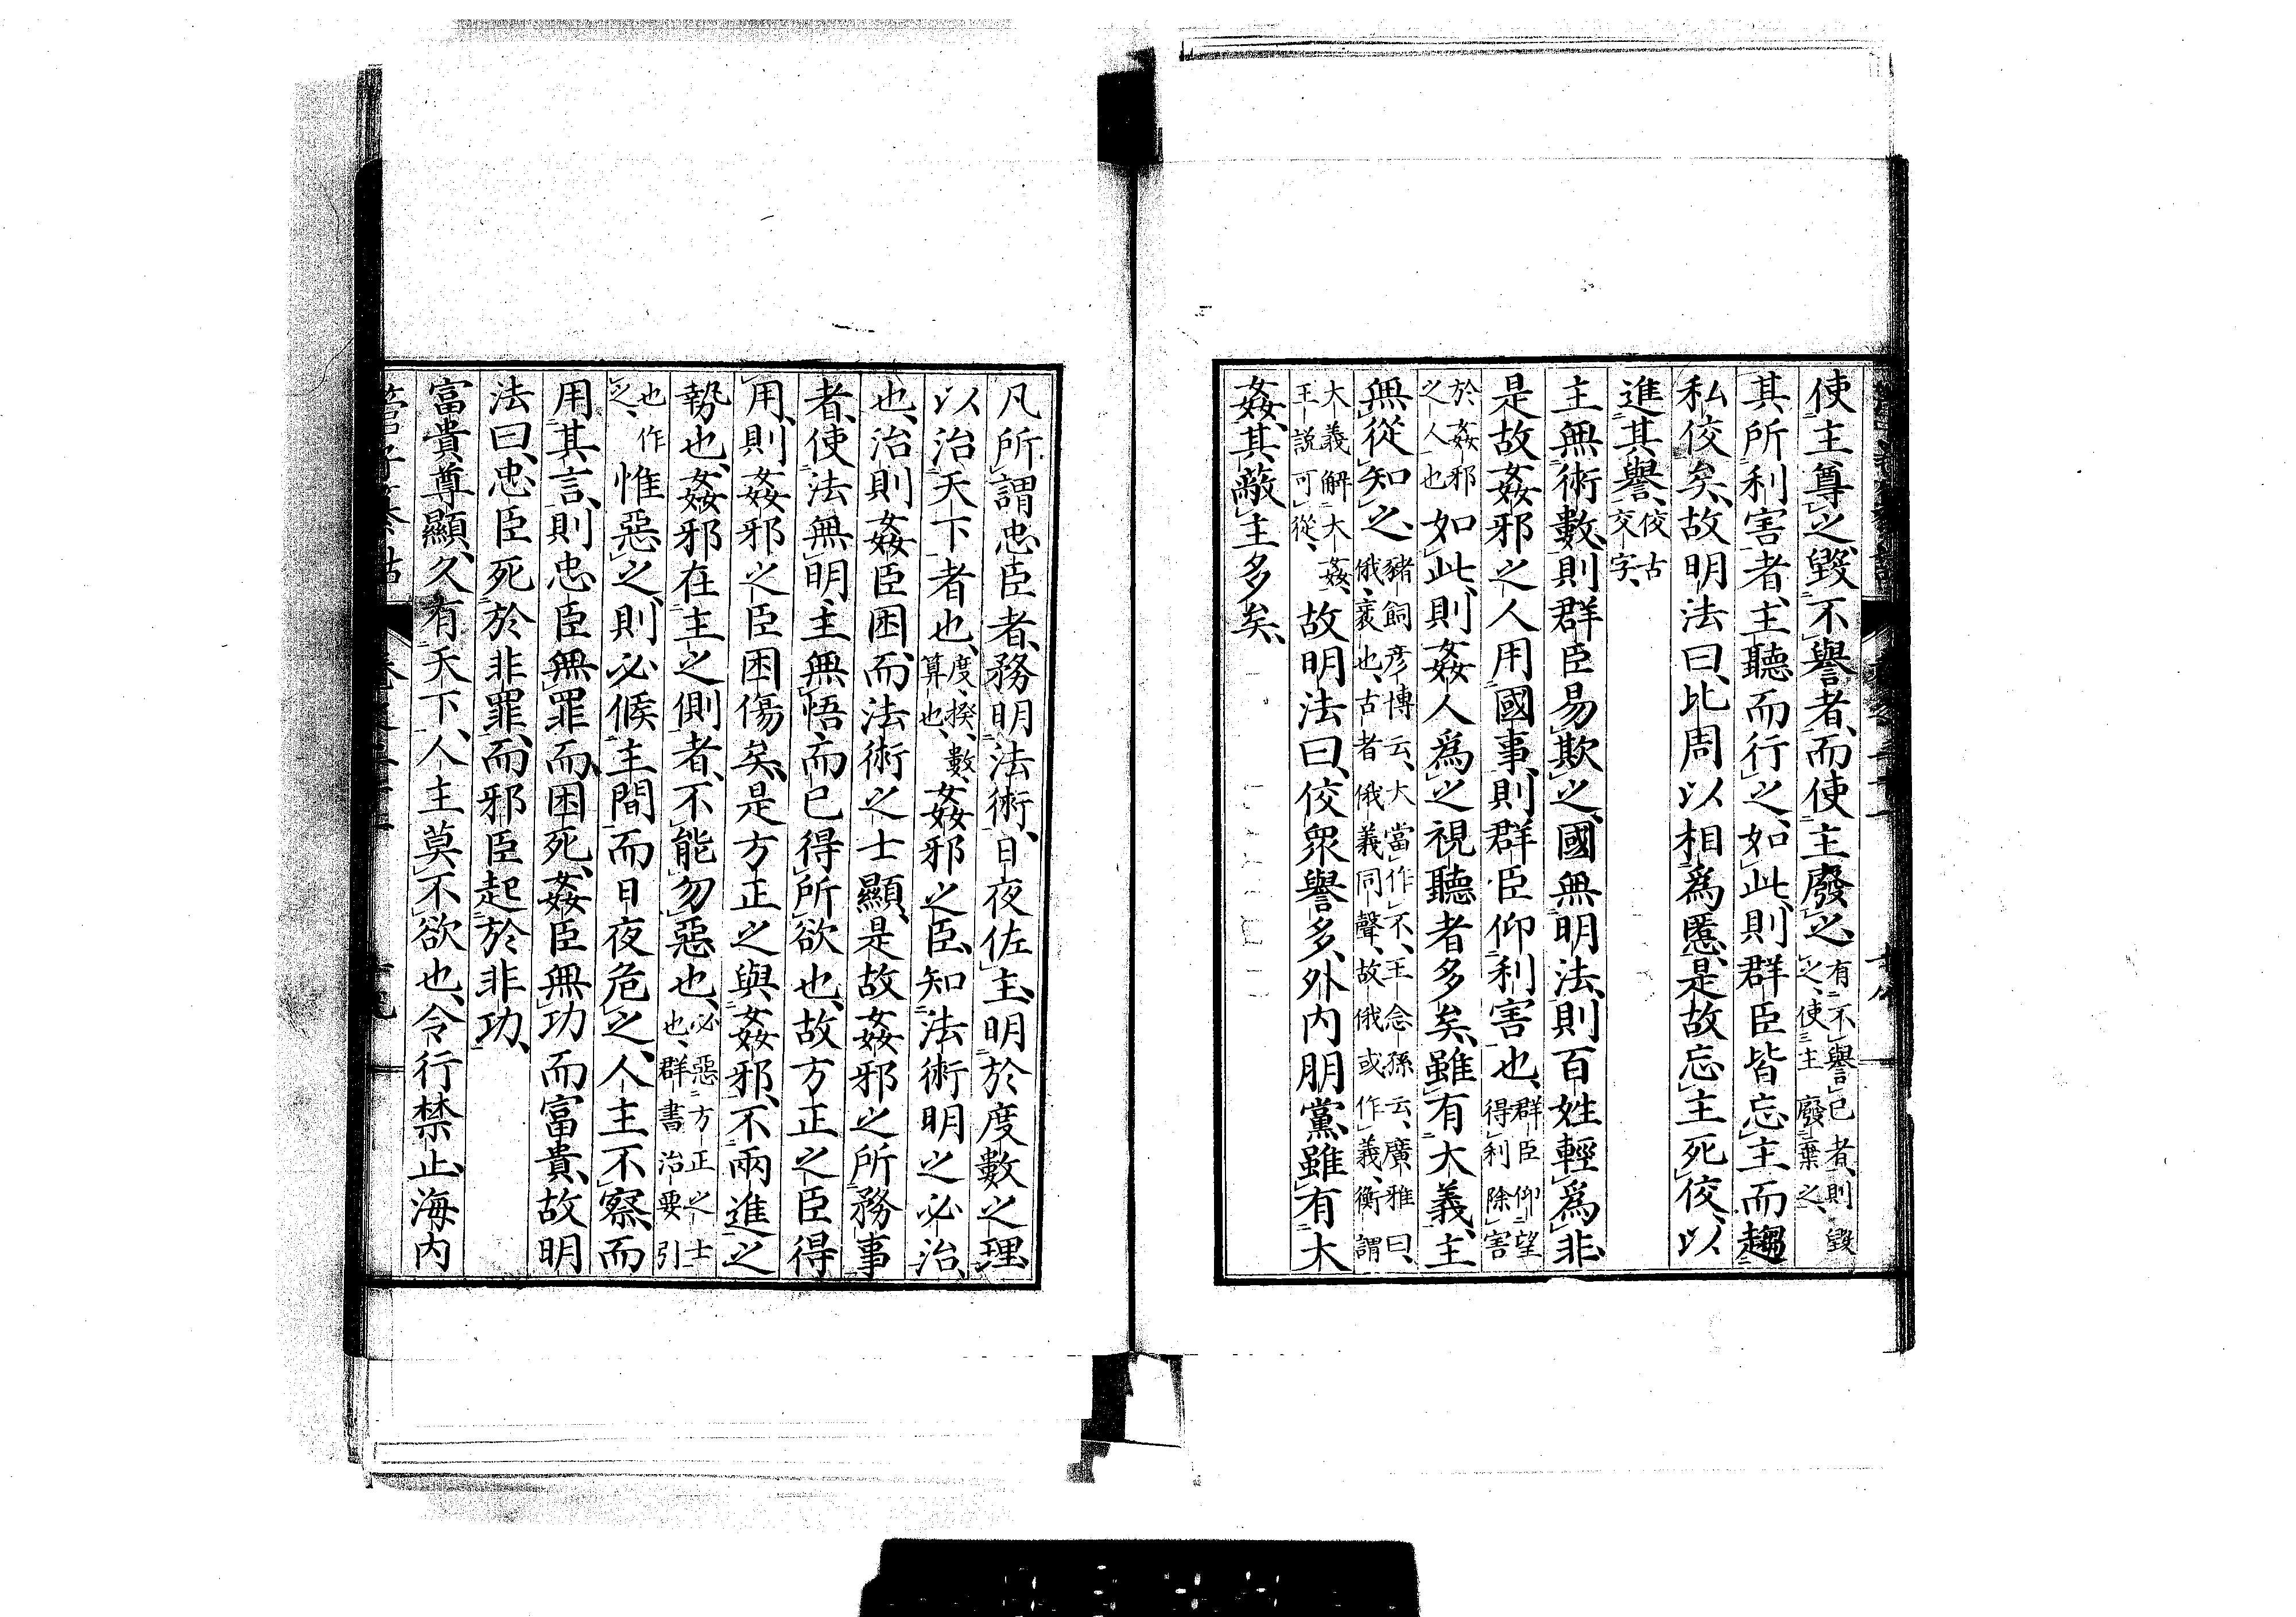 使主尊之、毀不譽者、而使主廢之、有不譽己者、則毀之、使主廢棄之、
其所利害者、主聽而行之、如此、則群臣皆忘主、而趨
私佼矣、故明法曰、比周以相爲慝、是故忘主死佼、以
進其譽、佼古交字、
主無術數、則群臣易欺之、國無明法、則百姓輕爲非、
是故姦邪之人用國事、則群臣仰利害也、群臣仰望得利除害
於姦邪之人也如此、則姦人爲之視聽者多矣、雖有大義、主
無從知之、豬飼彦博云、大當作不、王念孫云、廣雅曰、俄、衺也、古者俄義同聲、故俄或作義、衡謂
大義解大姦、王説可從、故明法曰、佼衆譽多、外内朋黨、雖有大
姦、其蔽主多矣、
凡所謂忠臣者、務明法術、日夜佐主、明於度數之理、
以治天下者也、度、揆、數、算也、姦邪之臣、知法術明之必治
也、治則姦臣困、而法術之士顯、是故姦邪之所務事
者、使法無明、主無悟、而已得所欲也、故方正之臣得
用、則姦邪之臣困傷矣、是方正之與姦邪、不兩進之
勢也、姦邪在主之側者、不能勿惡也、必惡方正之士也、群書治要引
也作之、惟惡之、則必候主間、而日夜危之、人主不察、而
用其言、則忠臣無罪、而困死、姦臣無功而富貴、故明
法曰、忠臣死於非罪、而邪臣起於非功、
富貴尊顯、久有天下、人主莫不欲也、令行禁止、海内